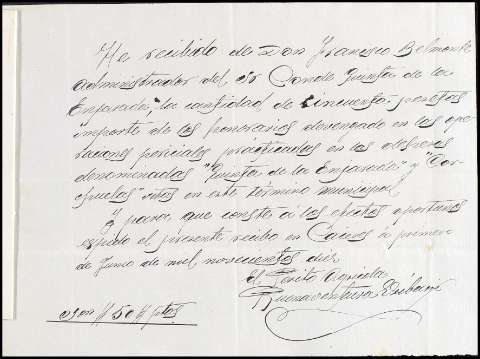 He recibido de Don Francisco Belmonte
administrador del Sr Conde Quinta de la
Enjarada, la cantidad de cincuenta pesetas
importe de los honorarios devengado en las ope-
raciones periciales practicadas en las dehesas
denominadas "Quinta de la Enjarada" y
sitas en este término municipal
Y para que conste á los efectos oportunos
expido el presente recibo en Cáceres á primero
de Junio de mil novecientos diez
El Perito Agrícola
Buenaventura
Son # 50 # ptas